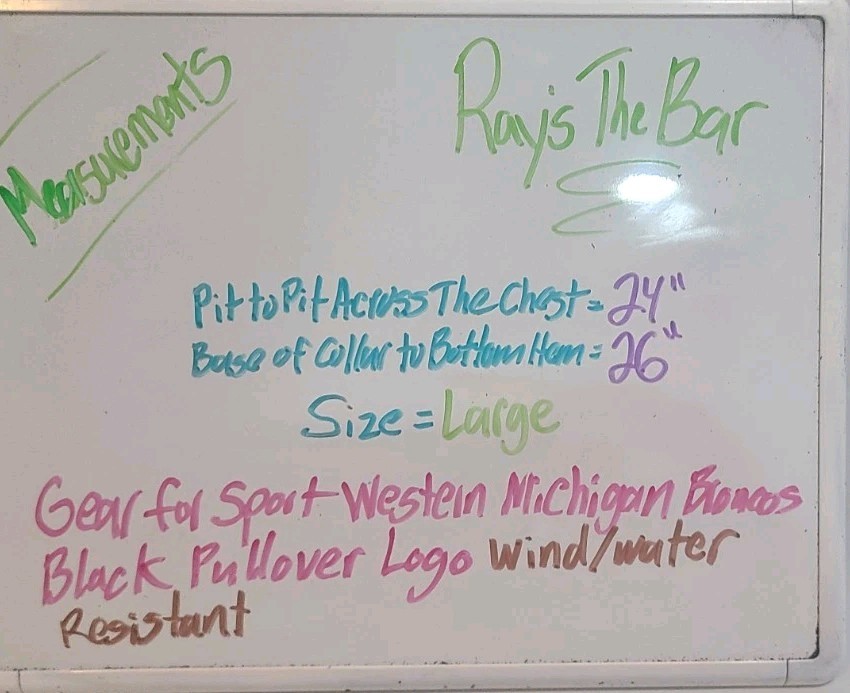 Measurements
Ray's The Bar
Pit to Pit Across The Chest = 24"
Base of Collar to Bottom Hem = 26"
Size = Large
Gear for Sport Western Michigan Broncos
Black Pullover Logo wind/water
Resistant